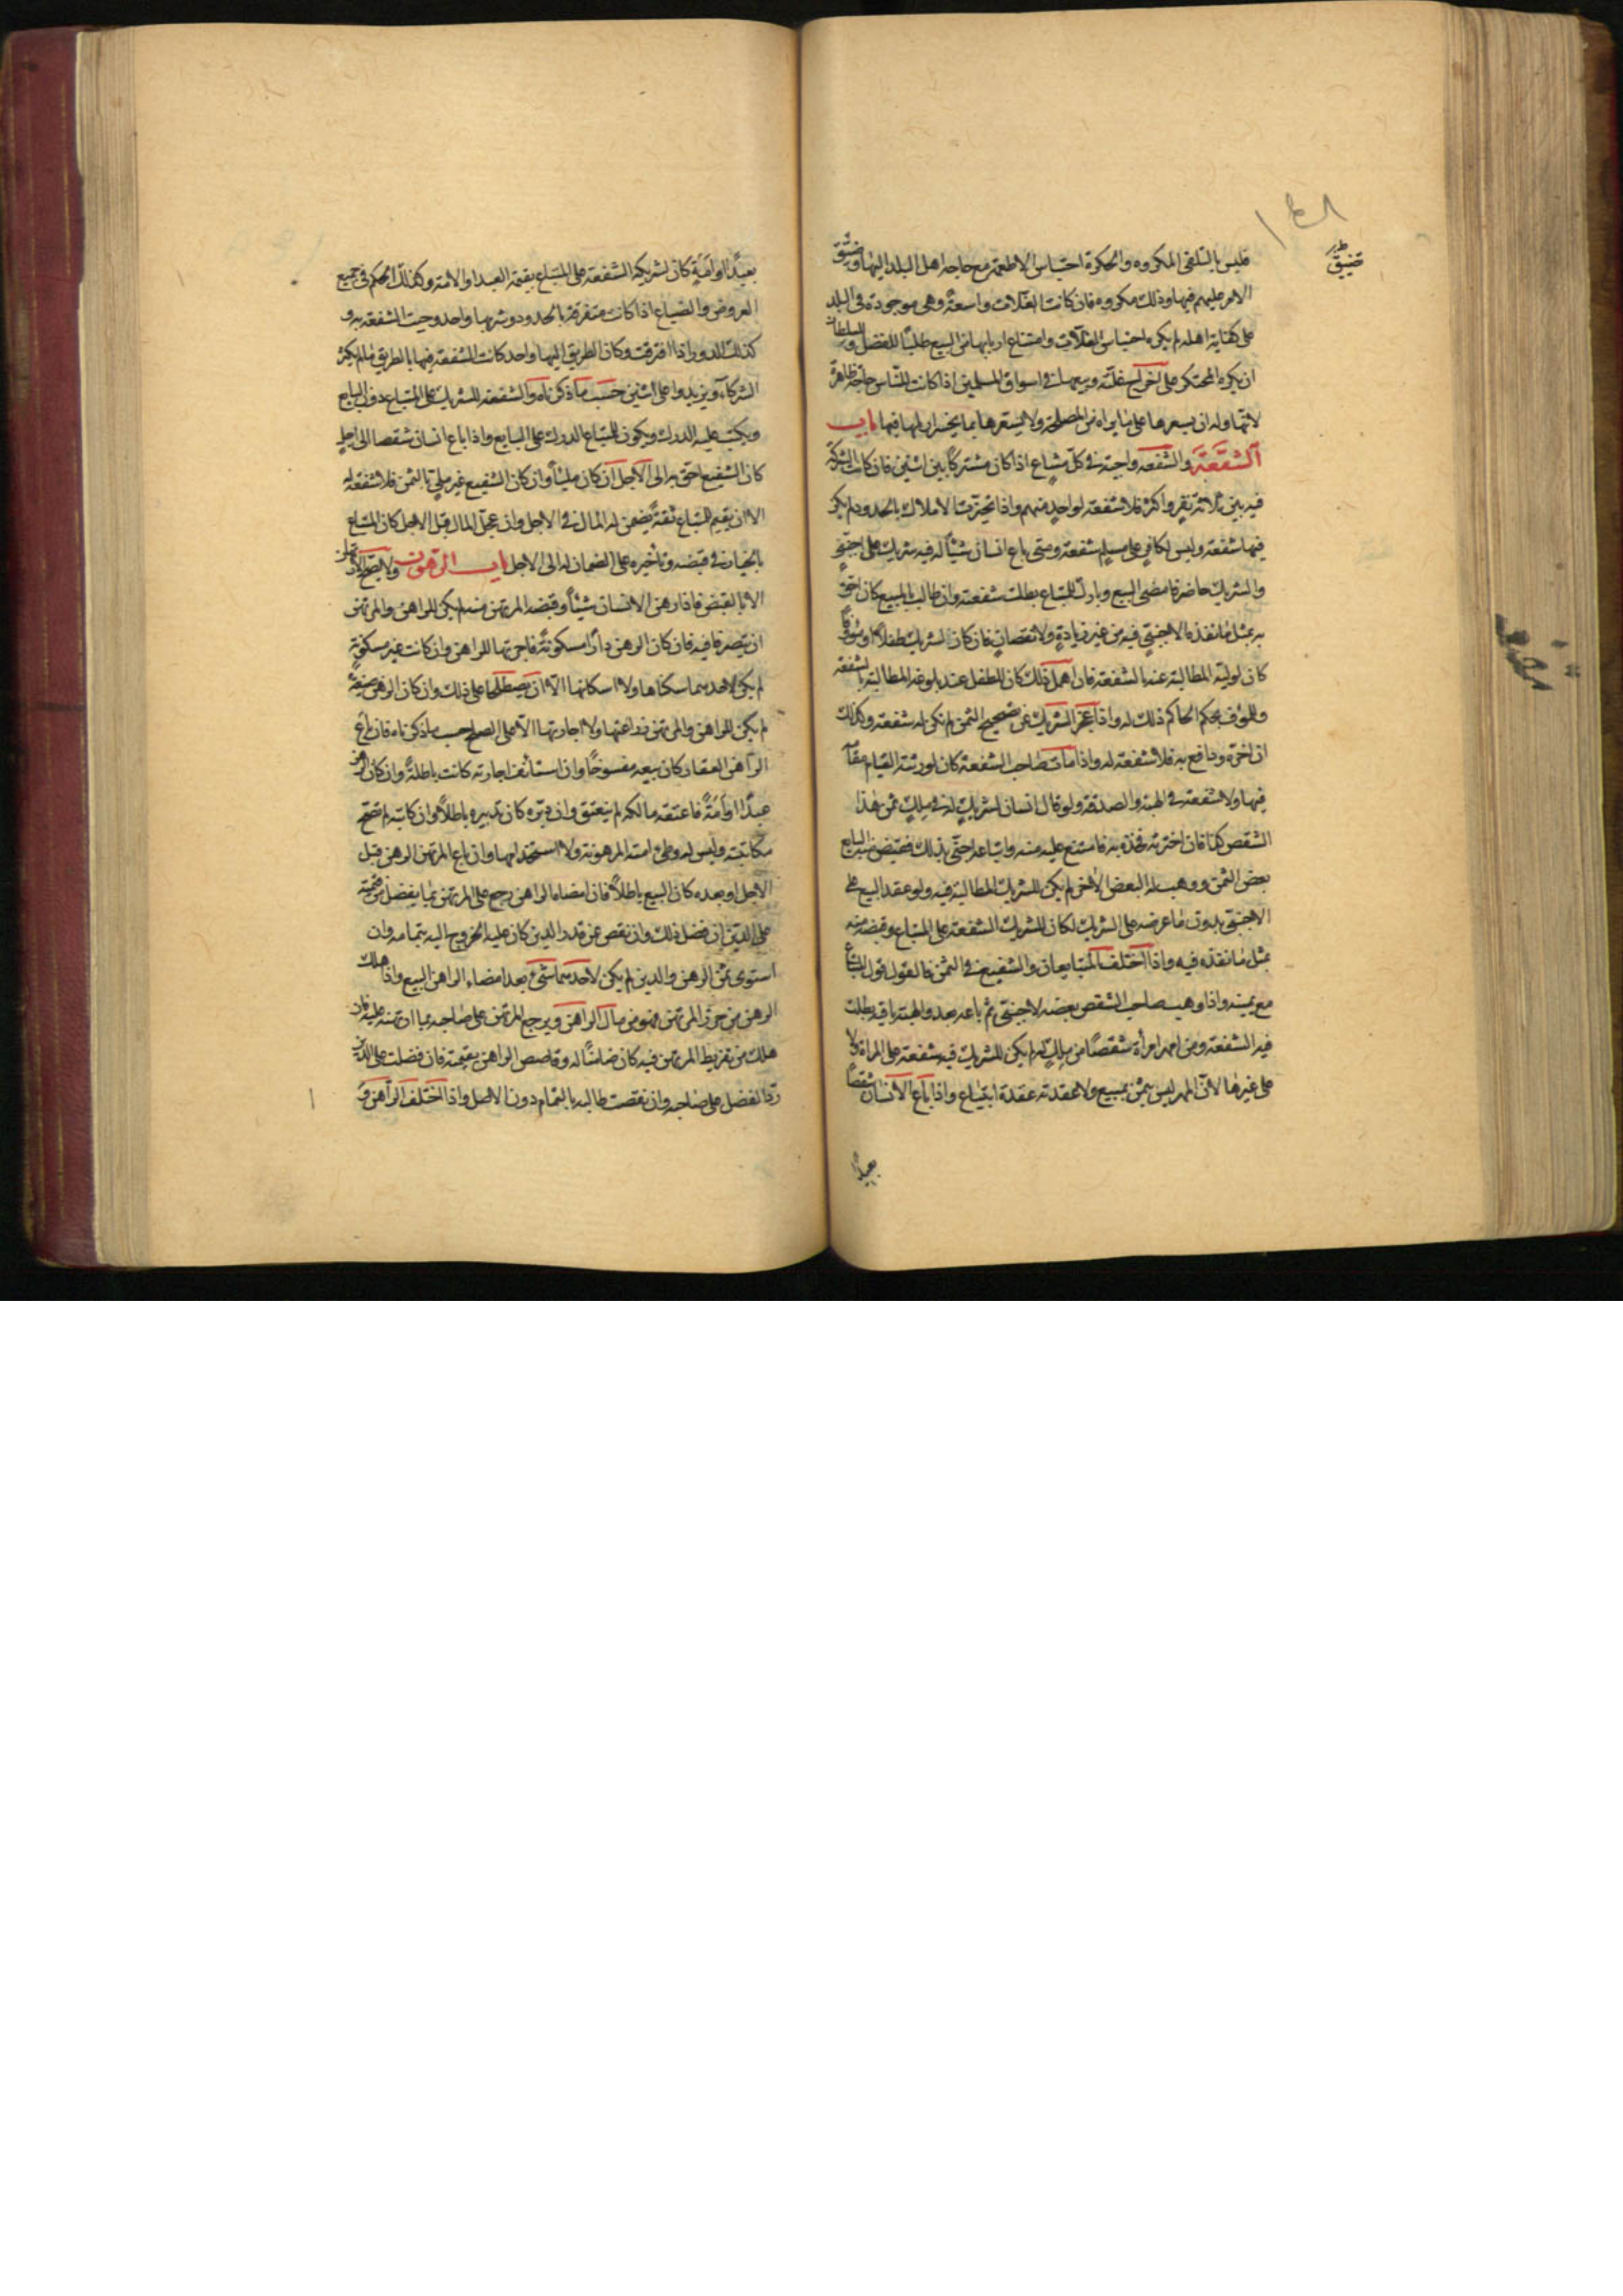 فليس بالتلقى المكروه والحكرة احتباس الاطعمة مع حاجة اهل البلد اليها وضيق
الامر عليهم فيها وذلك مكروه فان كانت الغلات واسعة وهى موجودة فى البلد
على كفاية اهله لم يكره احتباس الغلات وامتناع اربابها من البيع طلبا للفضل وللسلطان
ان يكره المحتكر على اخراج غلته وبيعها فى اسواق المسلمين اذا كانت للناس حاجة ظاهرة
اليها وله ان يسعرها على ما يراه من المصلحة ولا يسعرها بما يخسر اربابها فيها باب
الشفعة والشفعة واجبة فى كل مشاع اذا كان مشتركا بين اثنين فان كانت الشركة
فيه بين ثلاثة نفر واكثر فلا شفعة لواحد منهم واذا تحيزت الاملاك بالحدود لم يكن
فيها شفعة وليس لكافر على مسلم شفعة ومتى باع انسان شيئا له فيه شريك على اجنبى
والشريك حاضر فامضى البيع وبارك للمبتاع بطلت شفعته وان طالب بالمبيع كان احق
به بمثل ما نقده الاجنبى فيه من غير زيادة ولا نقصان فان كان الشريك طفلا او مؤوفا
كان لوليه المطالبة عنه بالشفعة فان اهمل ذلك كان للطفل عند بلوغه المطالبة بالشفعة
وللمؤوف بحكم الحاكم ذلك له واذا عجز الشريك عن صحيح الثمن لم تكن له شفعة وكذلك
ان اخره ودافع به فلا شفعة له واذا مات صاحب الشفعة كان لورثته القيام مقامه
فيها ولا شفعة فى الهبة والصدقة ولو قال انسان لشريك له فى ملك ثمن هذا
الشقص كذا فان اخترته فخذه به فامتنع عليه منه وابتاعه اجنبى بذلك فقبض منه البايع
بعض الثمن ووهب له البعض الاخر لم يكن للشريك المطالبة فيه ولو عقد البيع على
الاجنبى بدون ما عرضه على الشريك لكان للشريك الشفعة على المبتاع وقبضه منه
بمثل ما نقده فيه واذا اختلف المتبايعان والشفيع فى الثمن فالقول قول المبتاع
مع يمينه واذا وهب صاحب الشقص بعضه لاجنبى ثم باعه بعد والهبة باقية بطلت
فيه الشفعة ومن امهر امرأة شقصا من ملك له لم يكن للشريك فيه شفعة على المراة ولا
على غيرها لان المهر ليس بثمن لمبيع ولا عقدته عقدة ابتياع واذا باع الانسان شقصا
بعبد
ضيق
بعبد او امة كان لشريكه الشفعة على المبتاع بقيمة العبد او الامة وكذلك الحكم فى جميع
العروض والضياع اذا كانت متفرقة بالحدود وشربها واحد وجبت الشفعة به و
كذلك الدور اذا افترقت وكان الطريق اليها واحد كانت الشفعة فيها بالطريق ما لم يكثر
الشركاء ويزيدوا على اثنين حسب ما ذكرناه والشفعة للشريك على المبتاع دون البايع
ويكتب عليه الدرك ويكون للمبتاع الدرك على البايع واذا باع انسان شقصا الى اجل
كان الشفيع احق به الى الاجل ان كان مليا وان كان الشفيع غير ملى بالثمن فلا شفعة له
الا ان يقيم للمبتاع ثقة يضمن له المال فى الاجل وان عجل المال قبل الاجل كان المبتاع
بالخيار فى قبضه وتأخيره على الضمان له الى الاجل باب الرهون ولا يصح الارتهان
الا بالقبض فاذا رهن الانسان شيئا وقبضه المرتهن منه لم يكن للراهن والمرتهن
ان يتصرفا فيه فان كان الرهن دارا مسكونة فاجرتها للراهن وان كانت غير مسكونة
لم يكن لاحدهما سكناها ولا اسكانها الا ان يصطلحا على ذلك وان كان الرهن ضيعة
لم يكن للراهن والمرتهن زراعتها ولا اجارتها الا على الصلح حسب ما ذكرناه فان باع
الراهن العقار كان بيعه مفسوخا وان استأنف اجارته كانت باطلة وان كان الرهن
عبدا او امة فاعتقه مالكه لم ينعتق وان دبره كان تدبيره باطلا وان كاتبه لم تصح
مكاتبته وليس له وطئ امته المرهونة ولا استخدامها وان باع المرتهن الرهن قبل
الاجل او بعده كان البيع باطلا فان امضاه الراهن رجع على المرتهن بما يفضل من قيمته
على الدين ان فضل ذلك وان نقص عن قدر الدين كان عليه الخروج اليه بتمامه وان
استوى ثمن الرهن والدين لم يكن لاحدهما شئ بعد امضاء الراهن البيع واذا هلك
الرهن من حرز المرتهن فهو من مال الراهن ويرجع المرتهن على صاحبه بما ائتمنه عليه فان
هلك من تفريط المرتهن فيه كان ضامنا له وقاصص الراهن بقيمته فان فضلت على الدين
رد الفضل على صاحبه وان نقصت طالبه بالتمام دون الاصل واذا اختلف الراهن و